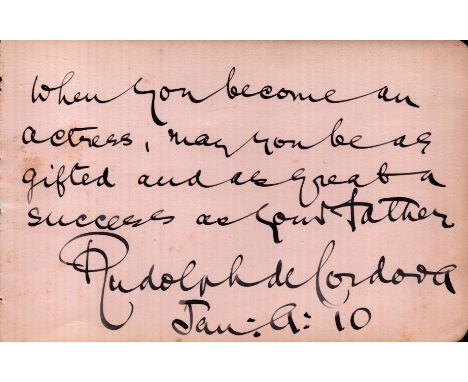 When you become an
actress, may you be as
gifted and as great a
success as your father
Rudolph de Cordova
Jan: 9: 10